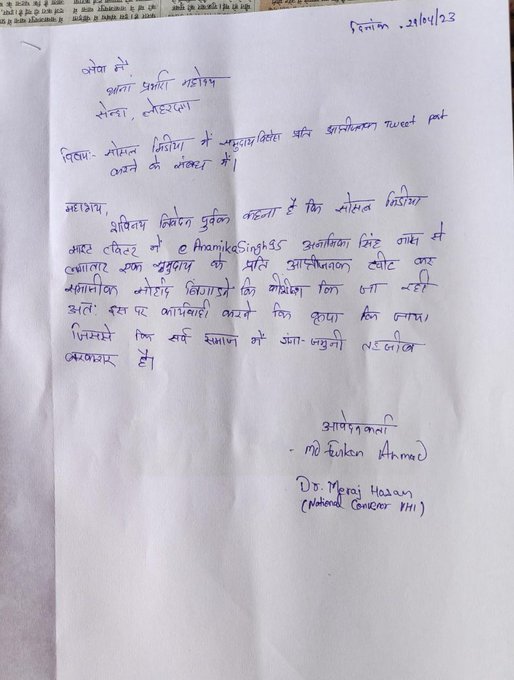 दिनांक . 29/04/23
सेवा में
थाना प्रभारी महोदय
सेन्हा, लोहरदगा
विषय:- सोसल मिडीया में समुदाय विशेष प्रति आप्तीजनक Tweet post
करने के संबंध में।
महाशय,
शविनय निवेदन पुर्वक कहना है कि सोसल मिडीया
साइट ट्विटर में @AnamikaSingh95 अनामिका सिंह नाम से
लगातार एक समुदाय के प्रति आप्तीजनक ट्वीट कर
समाजीक सौहार्द बिगाडने कि कोशिश कि जा रही
अतं इस पर कार्यवाही करने कि कृपा कि जाय।
जिससे कि सर्व समाज में गंगा-जमुनी तहजीब
बरकरार है।
आवेदनकर्ता
Md Furkan Ahmad
Dr. Meraj Hasan
(National Convenor